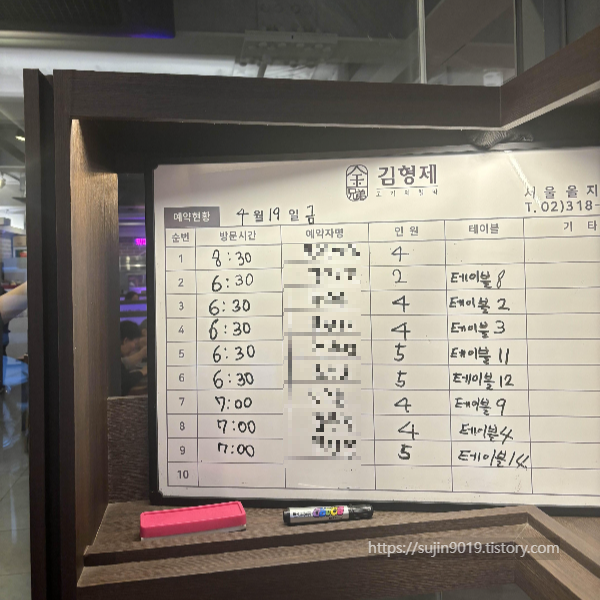 김형제
고기의철학
서울을지
T. 02)318-
예약현황 4월 19일 금
순번 방문시간 예약자명 인원 테이블 기타
1 8:30 4
2 6:30 2 테이블 8
3 6:30 4 테이블 2
4 6:30 4 테이블 3
5 6:30 5 테이블 11
6 6:30 5 테이블 12
7 7:00 4 테이블 9
8 7:00 4 테이블 4
9 7:00 5 테이블 14
10
https://sujin9019.tistory.com